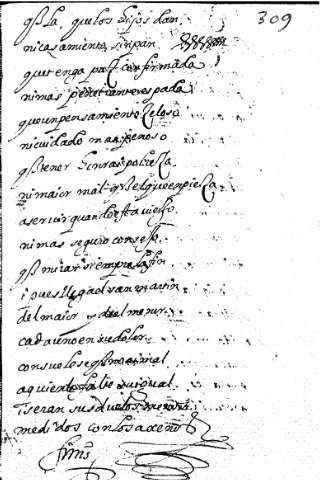 309
qs la que los hijos dan
ni casamiento, sin pan
que tenga paz confirmada
ni mas penetrante espada
que un pensamiento zeloso
ni cuidado mas penoso
qs tener honra i pobreza
ni maior mal qs el que empieza
a servir quando esta viejo
ni mas seguro consejo
qs mirar siempre la fin
i pues llega el san martin
del maior y del menor
cada uno en su dolor
consuelese qs no ai mal
a quien le falte su igual
i seran sus duelos menos
medidos con los axenos
finis